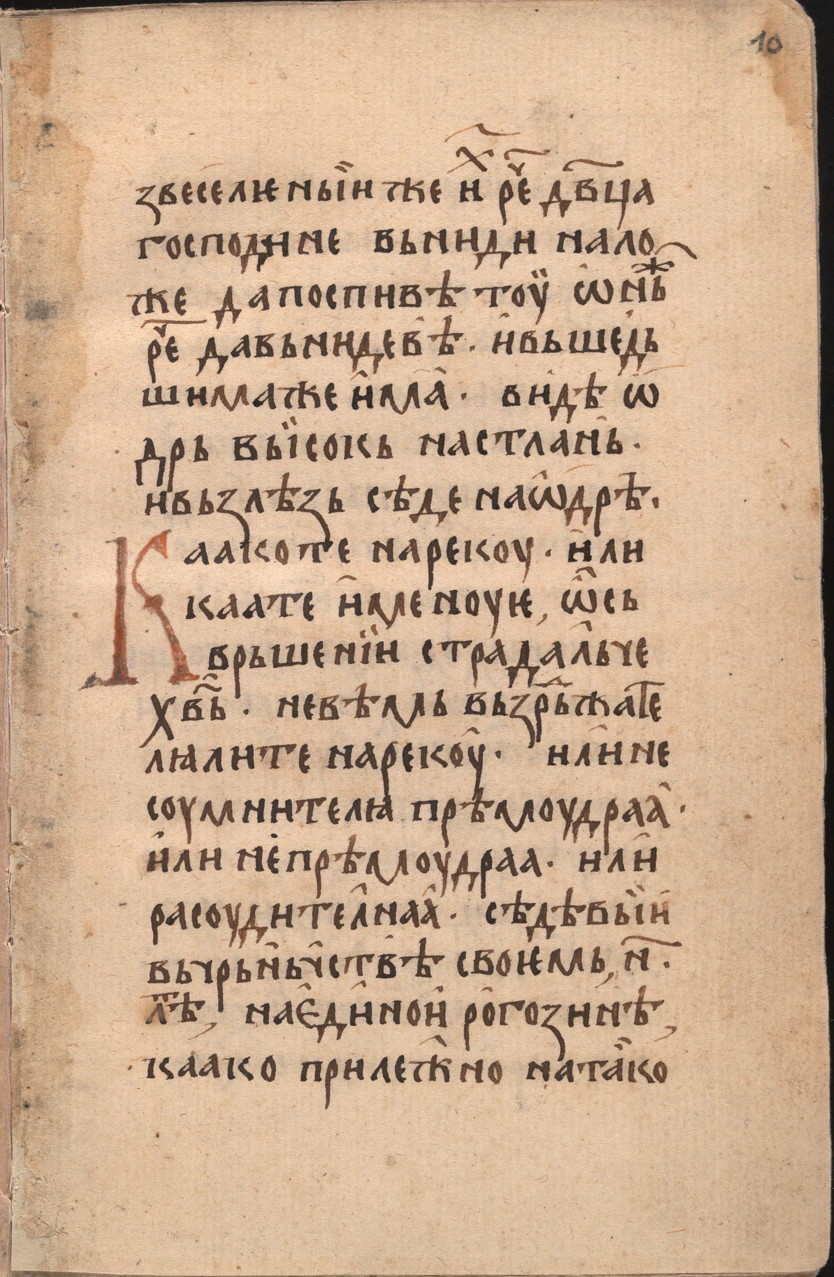 10
звеселѥныи же и҆ рⷱ҇е дв҃ца
господине вьниди мало
же да поспивѣ тоу ѡ҆нь ж
рⷱ҇е да вьнидевѣ · и҆вьшедь
шимаже и҆ма̀ · видѣ ѡ
дрь высокь настлань ·
ивьзлѣзь сѣде наѡдрѣ ·
Каако те нарекоу · и҆ли
каа те и҆меноую, ѿсь
врьшенїи страдальче
хв҃ь · невѣмь вьзрьжате
лꙗ ли те нарекоу · или не
соумнителꙗ прѣмоудраа ·
и҆ли непрѣмоудраа · или
расоудителнаа · сѣдѣвыи
вьчрьньчствѣ своѥмь, н҃ ·
лѣⷮ, наѥдинои рогозинѣ,
каако прилежно натако